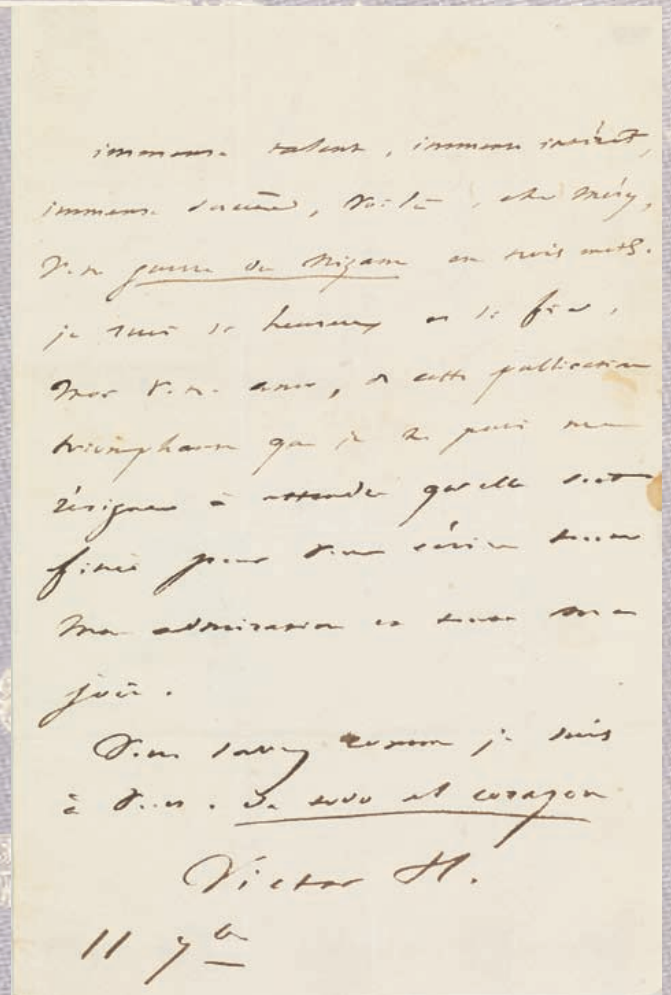 immense talent, immense intérêt,
immense succès, voilà, cher Méry,
votre guerre du Nizam en trois mots.
je suis si heureux et si fier,
moi votre ami, de cette publication
triomphante que je ne puis me
résigner à attendre qu'elle soit
finie pour vous écrire toute
mon admiration et toute ma
joie.
Vous savez comme je suis
à vous. de todo el corazon
Victor H.
11 7bre